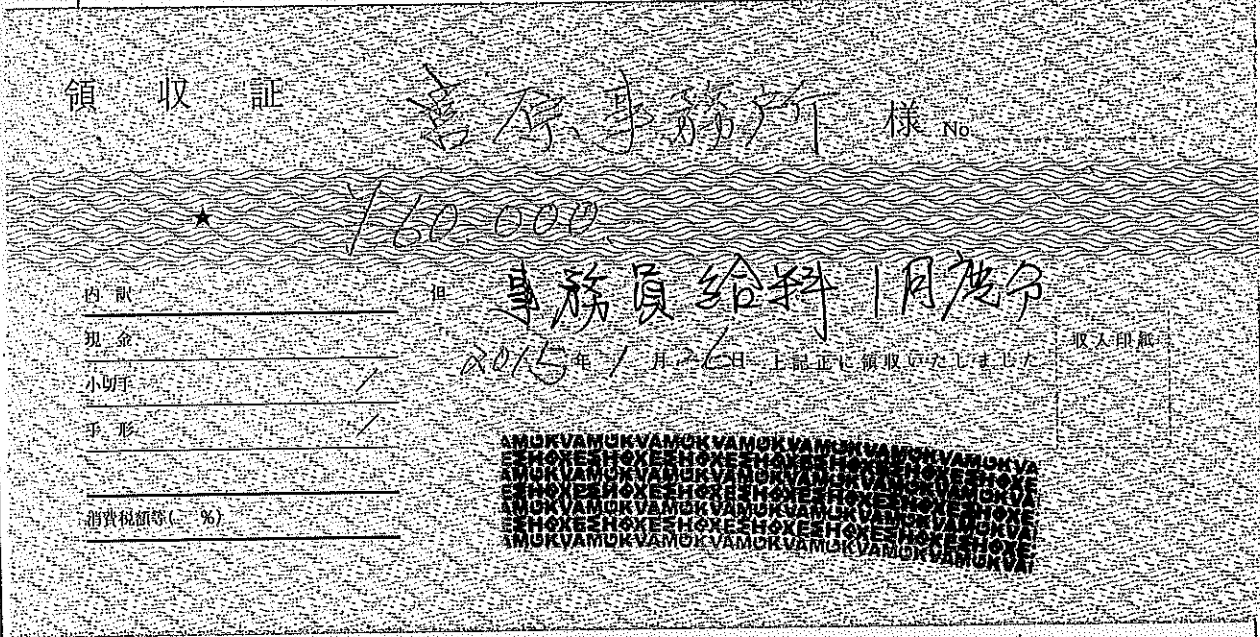 領収証 喜原事務所 様 No.
★ ¥60,000.
内訳
但 事務員給料1月度分
現金
2015年1月26日 上記正に領収いたしました
収入印紙
小切手 /
手形 /
消費税額等( %)